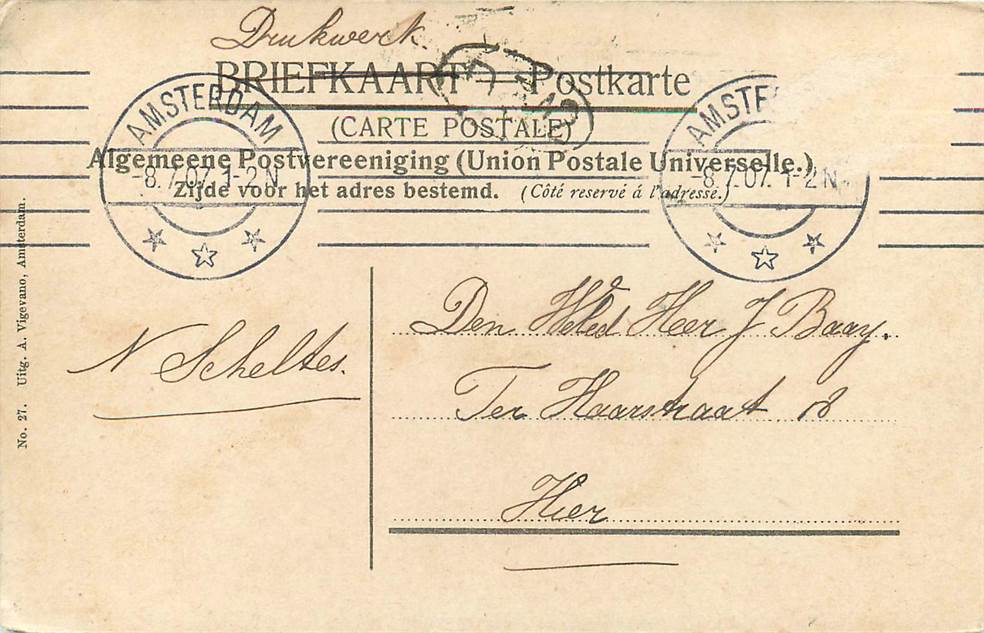 Drukwerk.
BRIEFKAART Postkarte
(CARTE POSTALE)
Algemeene Postvereeniging (Union Postale Universelle.)
Zijde voor het adres bestemd. (Côté reservé á l'adresse.)
AMSTERDAM
-8.7.07. 1-2N
AMSTE
-8.7.07. 1-2N
No. 27. Uitg. A. Vigevano, Amsterdam.
N Scheltes.
Den WelEd Heer J Baay.
Ter Haarstraat 18
Hier